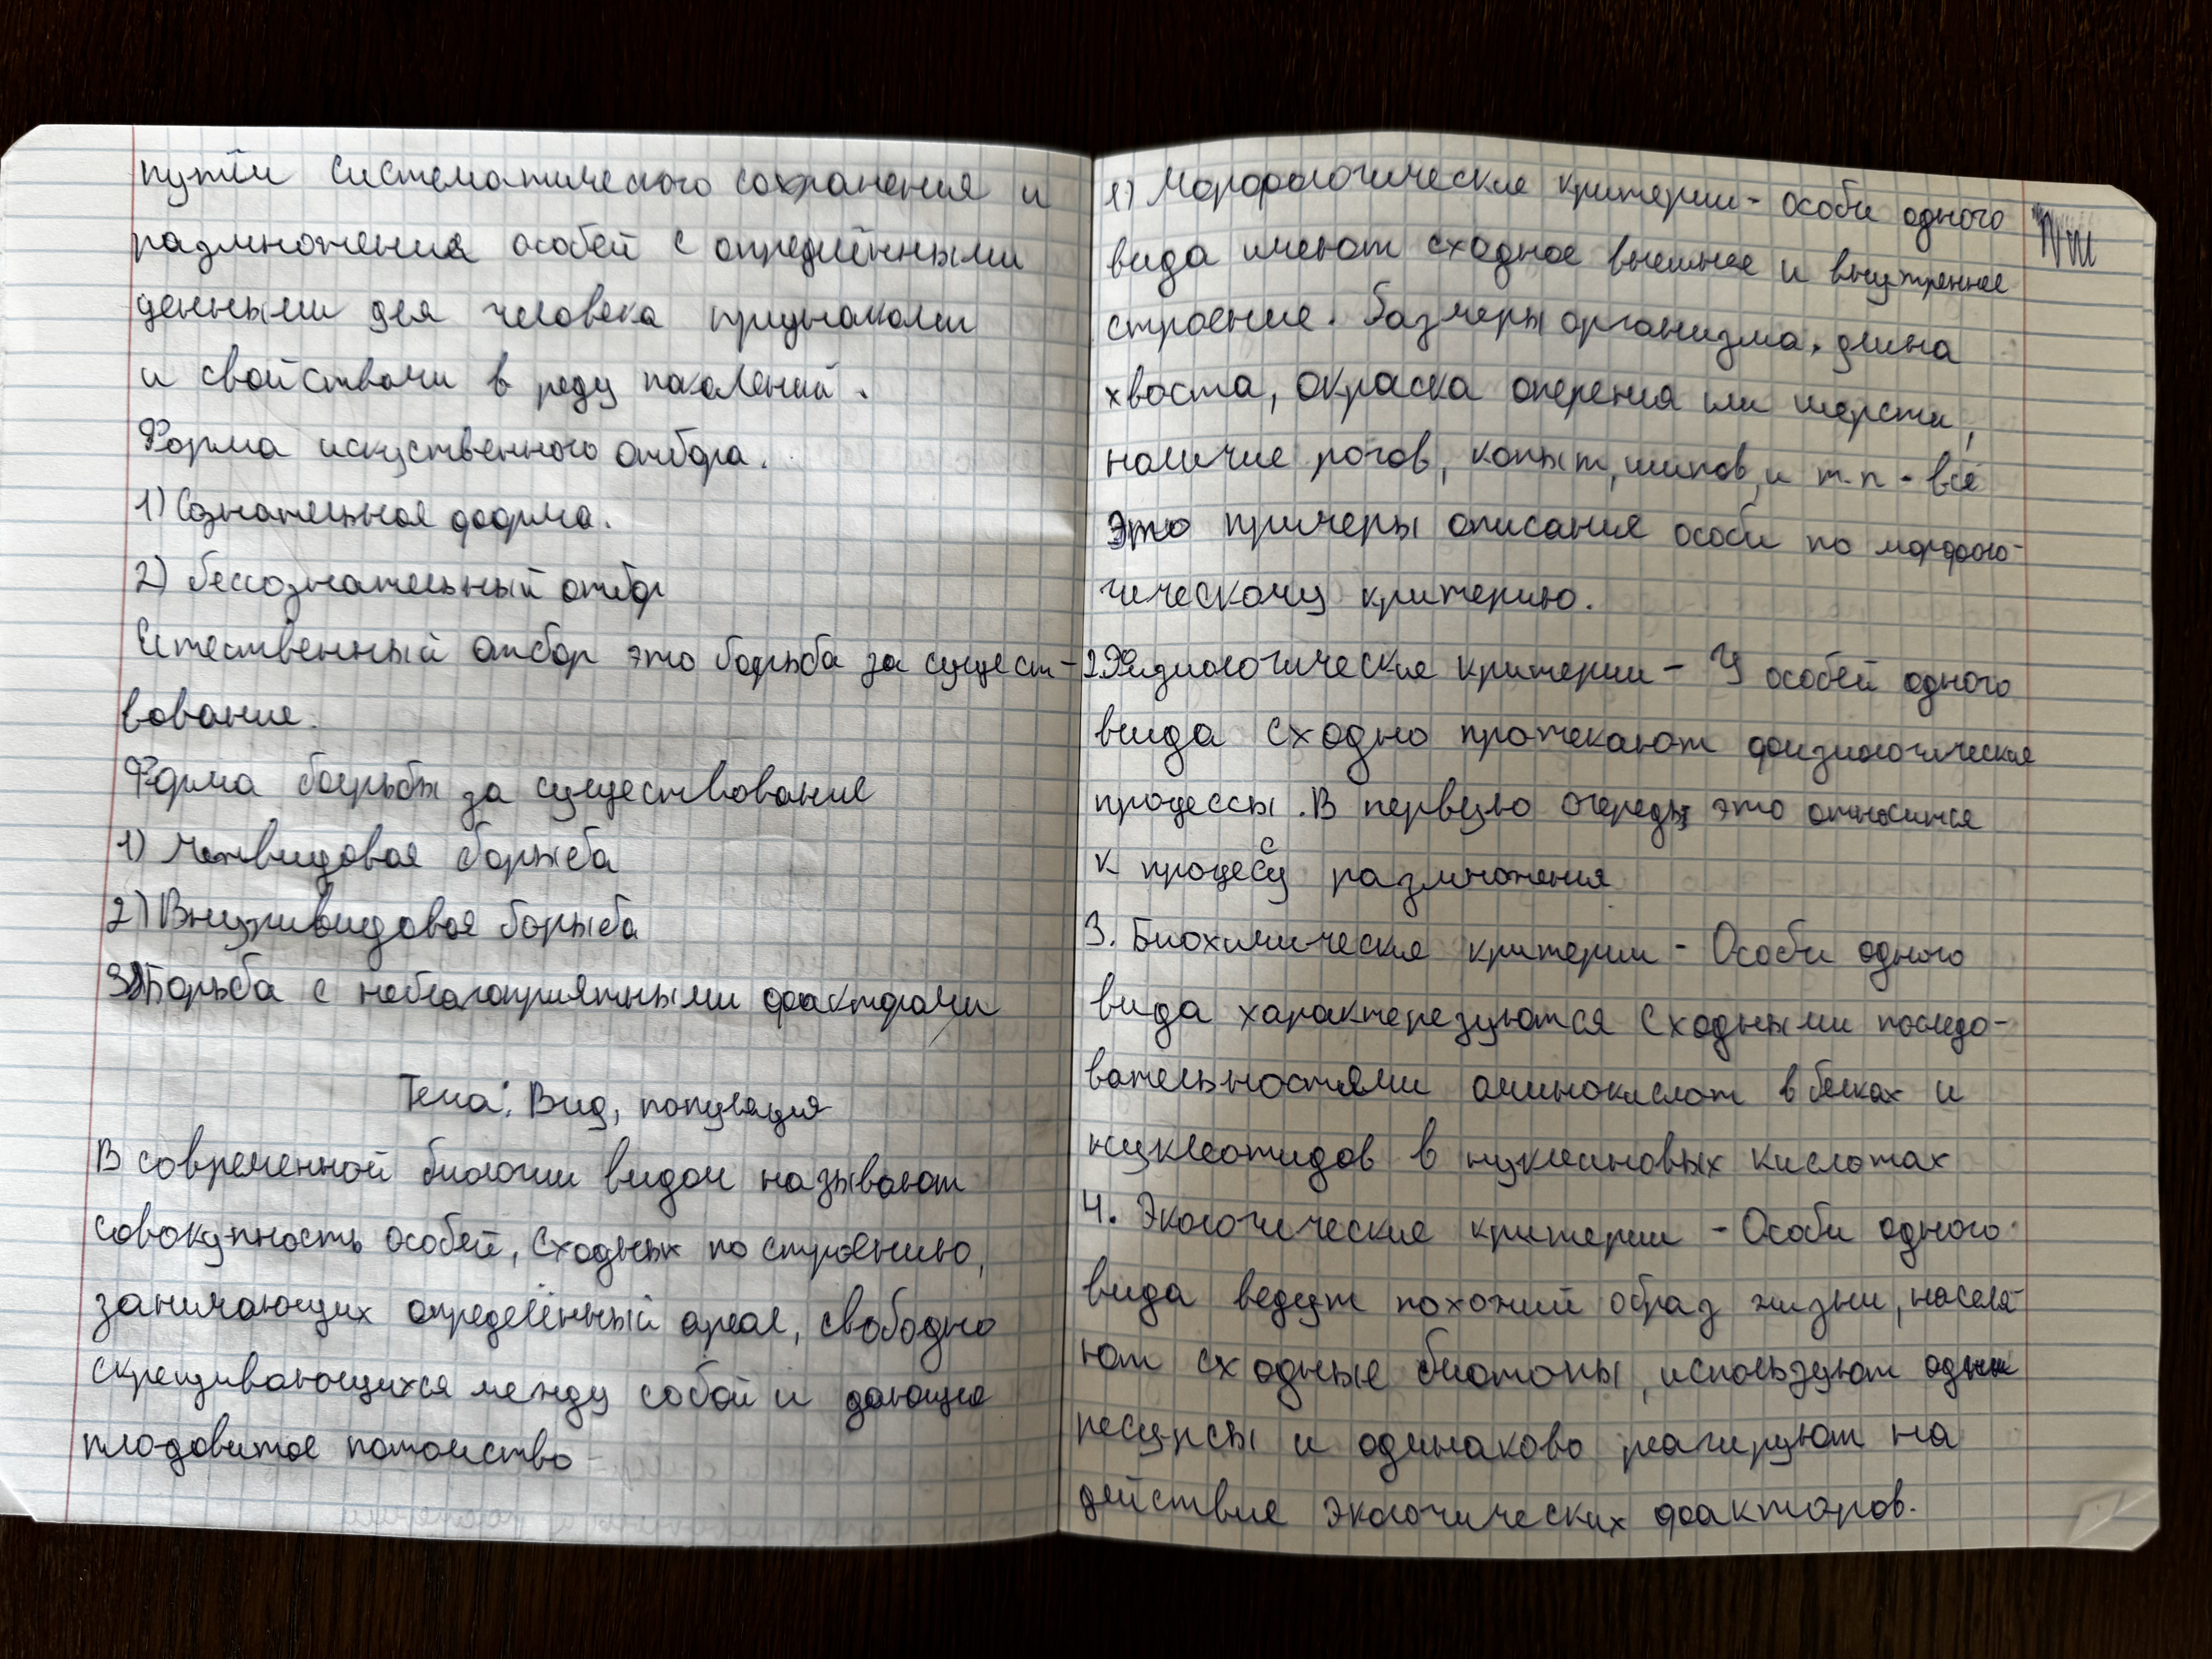 путём систематического сохранения и
размножения особей с определёнными
ценными для человека признаками
и свойствами в ряду поколений.
Форма искуственного отбора.
1) Сознательная форма.
2) бессознательный отбор
Естественный отбор это борьба за сущест-
вование.
Форма борьбы за существование
1) Межвидовая борьба
2) Внутривидовая борьба
3) Борьба с неблагоприятными факторами
Тема: Вид, популяция
В современной биологии видом называют
совокупность особей, сходных по строению,
занимающих определённый ареал, свободно
скрещивающихся между собой и дающие
плодовитое потомство
1) Морфологические критерии - особи одного
вида имеют сходное внешнее и внутреннее
строение. Размеры организма, длина
хвоста, окраска оперения или шерсти,
наличие рогов, копыт, шипов, и т.п - всё
Это примеры описания особи по морфоло-
гическому критерию.
2. Физиологические критерии - У особей одного
вида сходно протекают физиологические
процессы. В первую очередь это относится
к процессу размножения
3. Биохимические критерии - Особи одного
вида характерезуются сходными последо-
вательностями аминокислот в белках и
нуклеотидов в нуклеиновых кислотах
4. Экологические критерии - Особи одного
вида ведут похожий образ жизни, населя-
ют сходные биотопы, используют одни
ресурсы и одинаково реагируют на
действие экологических факторов.